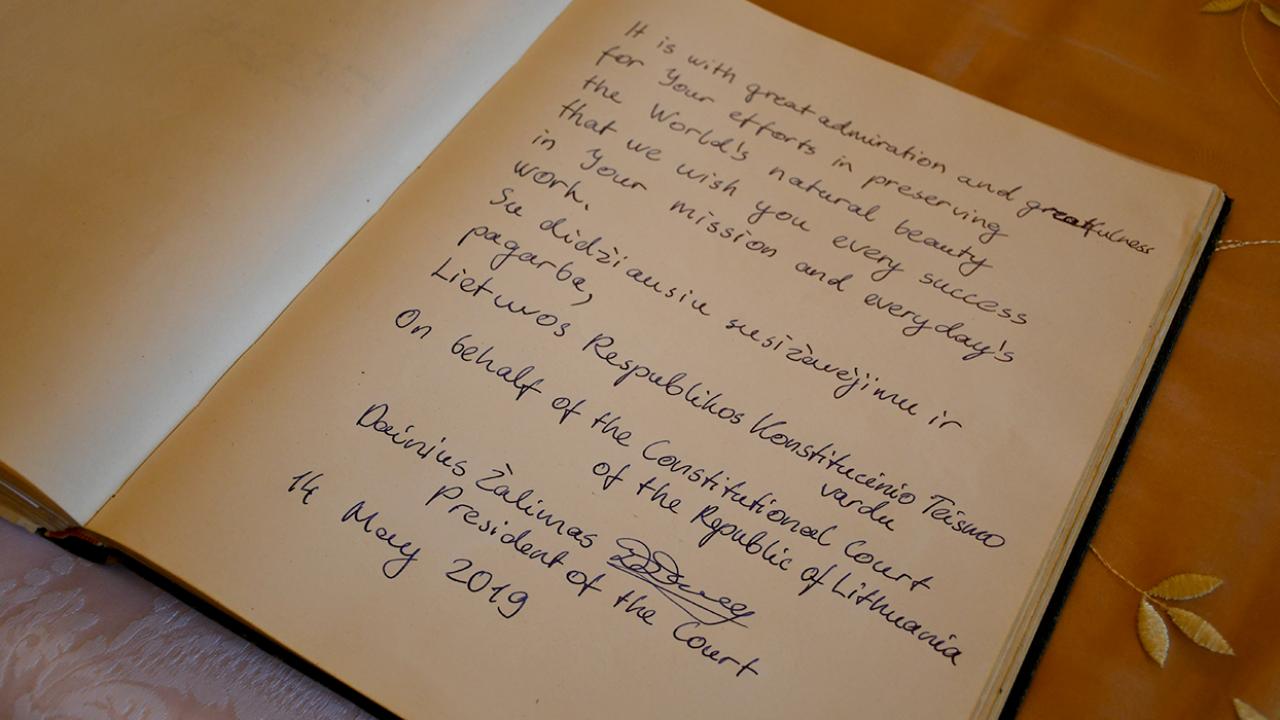 It is with great admiration and greatfulness
for Your efforts in preserving
the World's natural beauty
that we wish you every success
in Your mission and everyday's
work.
Su didžiausiu susižavėjimu ir
pagarba,
Lietuvos Respublikos Konstitucinio Teismo
vardu
On behalf of the Constitutional Court
of the Republic of Lithuania
Dainius Žalimas
President of the Court
14 May 2019